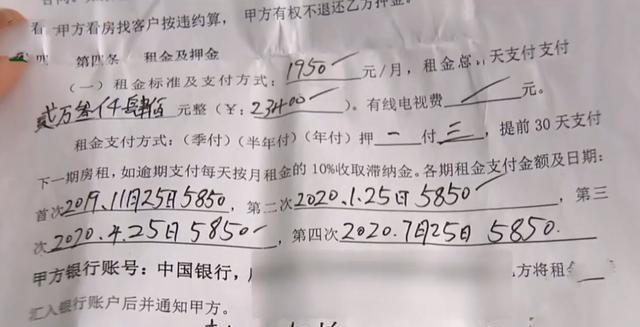 看 甲方看房找客户按违约算，甲方有权不退还乙方押金。
第四条 租金及押金
（一）租金标准及支付方式：1950元/月，租金总 天支付支付
贰万叁仟肆佰元整（￥：23400）。有线电视费／元。
租金支付方式：（季付）（半年付）（年付）押一付三，提前30天支付
下一期房租，如逾期支付每天按月租金的10%收取滞纳金。各期租金支付金额及日期：
首次2019.11月25日5850，第二次2020.1.25日5850，第三
次2020.4.25日5850，第四次2020.7月25日 5850.
甲方银行账号：中国银行， 方将租
汇入银行账户后并通知甲方。